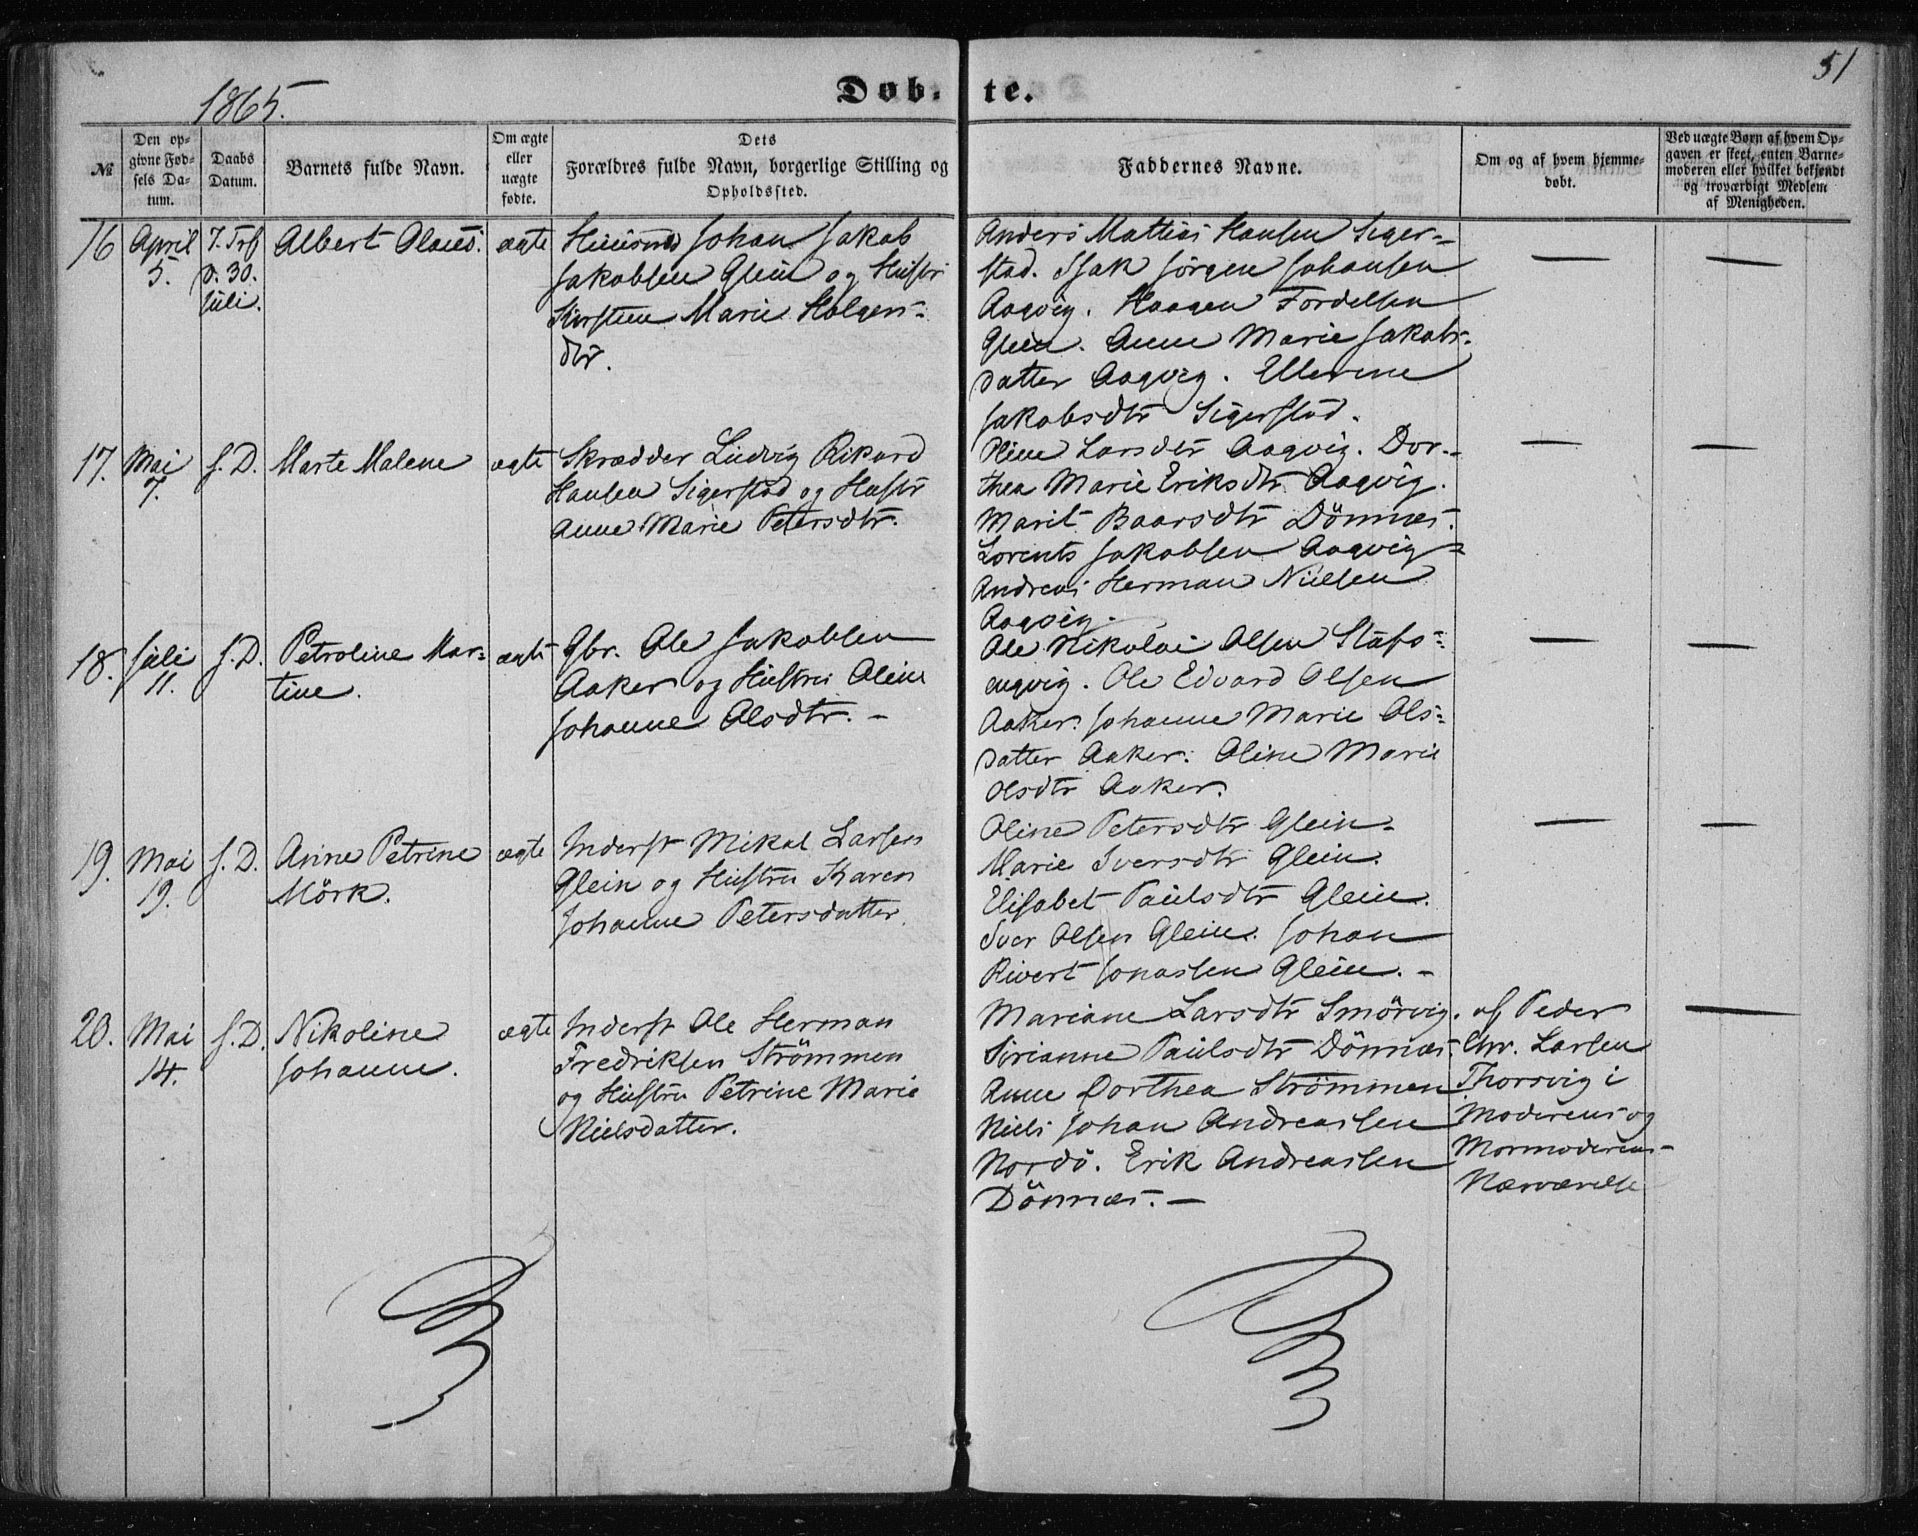 1865.
Döb-
te.
51
№
Den op-
givne Fød-
sels Da-
tum.
Daabs
Datum.
Barnets fulde Navn.
Om ægte
eller
uægte
fødte.
Dets
Forældres fulde Navn, borgerlige Stilling og
Opholdssted.
Faddernes Navne.
Om og af hvem hjemme-
døbt.
Ved uægte Børn af hvem Op-
gaven er skeet, enten Barne-
moderen eller hvilket bekjendt
og troværdigt Medlem
af Menigheden.
16
April
5.
7. Trf
d. 30.
Juli.
Albert Olaus.
ægte
Huusmd Johan Jakob
Jakobsen Glein og Hustr
Kirsten Marie Holgers-
dtr.
Anders Mattias Hansen Siger-
stad. Isak Jørgen Johansen
Aagvig. Haagen Tordelsen
Glein. Anne Marie Jakobs-
datter Aagvig. Ellerine
Jakobsdtr Sigerstad.
—
—
17.
Mai
7.
s. D.
Marte Malene
ægte
Skrædder Ludvig Rikard
Hansen Sigerstad og Hustr
Anne Marie Petersdtr.
Oline Larsdtr Aagvig. Dor-
thea Marie Eriksdtr Aagvig.
Marit Baarsdtr Dönnæs.
Lorents Jakobsen Aagvig-
Andreas Herman Nilsen
Aagvig.
—
—
18.
Juli
11.
s. D.
Petroline Mar-
tine.
ægte
Gbr. Ole Jakobsen
Aaker og Hustru Oline
Johanne Olsdtr. -
Ole Nikolai Olsen Stafs-
engvig. Ole Edvard Olsen
Aaker. Johanne Marie Ols-
datter Aaker. Oline Marie
Olsdtr Aaker.
—
—
19.
Mai
19.
s. D.
Anne Petrine
Mörk.
ægte
Inderst Mikal Larsen
Glein og Hustru Karen
Johanne Petersdatter
Oline Petersdtr Glein.
Marie Iversdtr Glein.
Elisabet Paulsdtr Glein.
Iver Olsen Glein. Johan
Rivert Jonassen Glein. -
—
—
20.
Mai
14.
s. D.
Nikoline
Johanne.
ægte
Inderst Ole Herman
Fredriksen Strömmen
og Hustru Petrine Marie
Nielsdatter.
Mariane Larsdtr Smörvig.
Sirianne Paulsdtr Dönnæs.
Anne Dorthea Strömmen
Niels Johan Andreassen
Nordö. Erik Andreassen
Dönnæs. —
af Peder
Chr. Larsen
Thorsvig i
Moderens og
Mormoderens-
Nærværelse
—